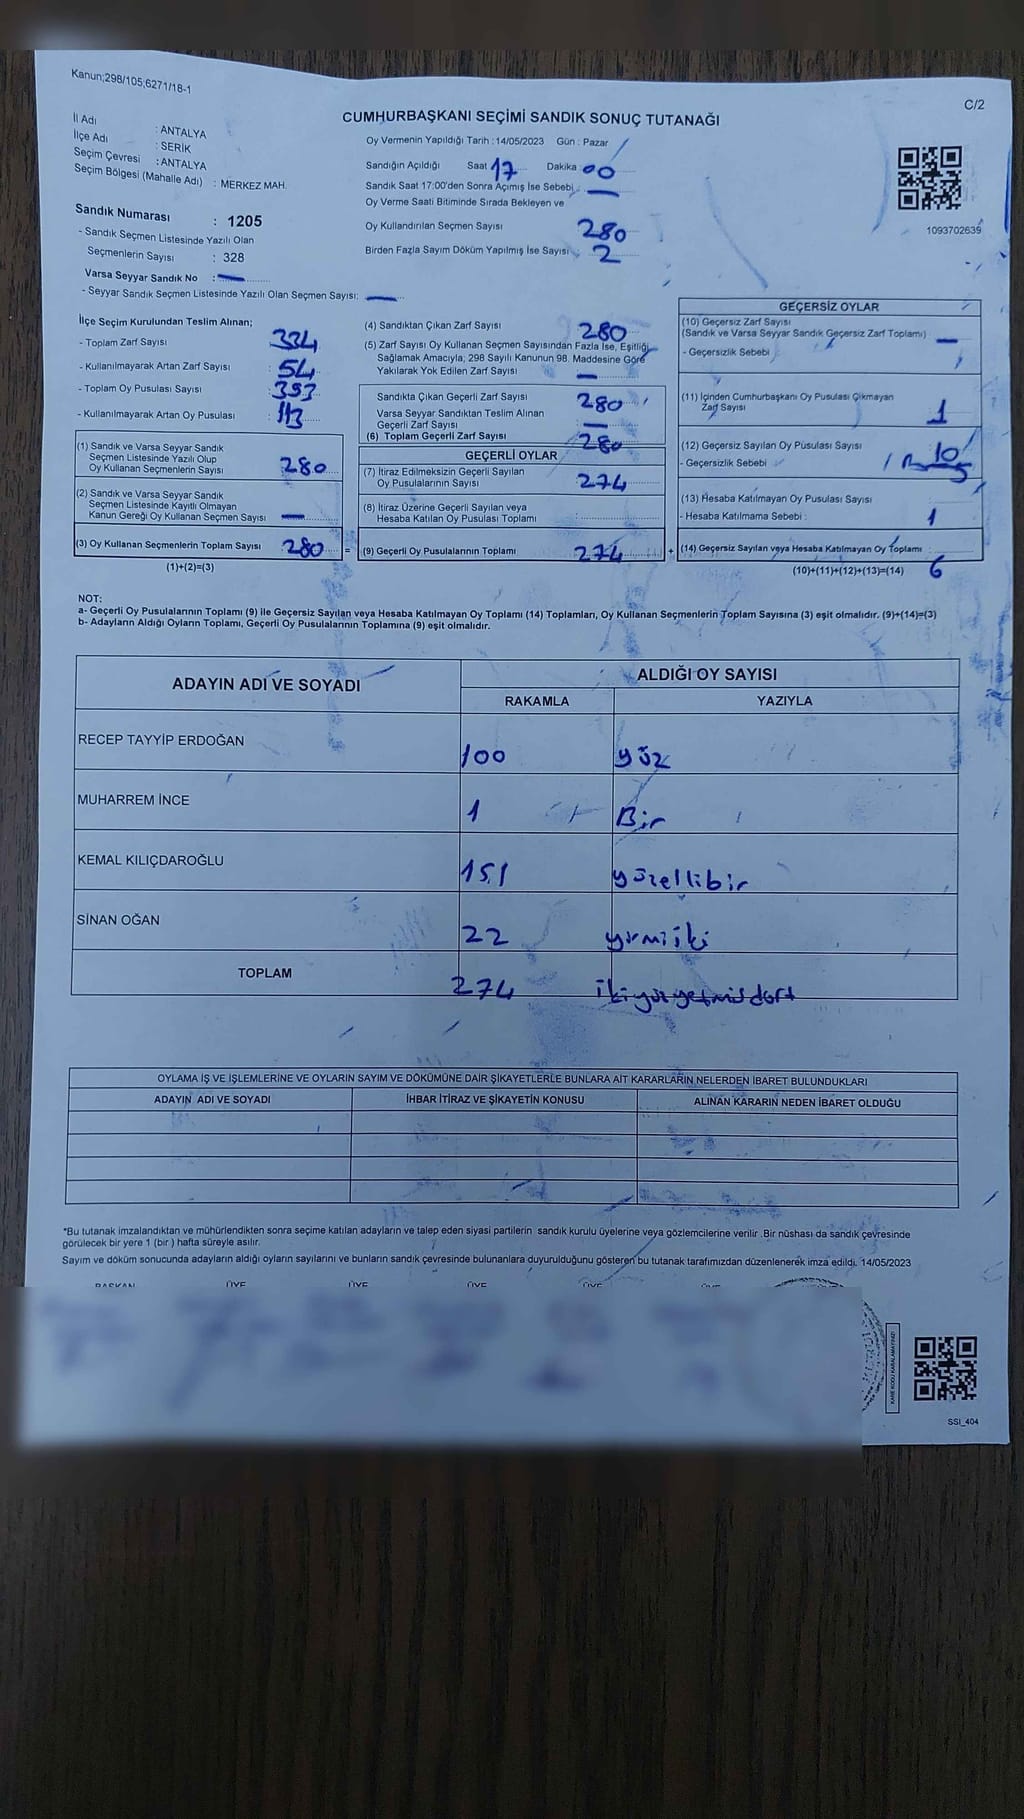 Kanun;298/105;6271/18-1
C/2
CUMHURBAŞKANI SEÇİMİ SANDIK SONUÇ TUTANAĞI
İl Adı : ANTALYA
İlçe Adı : SERİK
Seçim Çevresi : ANTALYA
Seçim Bölgesi (Mahalle Adı) : MERKEZ MAH.
Sandık Numarası : 1205
- Sandık Seçmen Listesinde Yazılı Olan
Seçmenlerin Sayısı : 328
Varsa Seyyar Sandık No :
- Seyyar Sandık Seçmen Listesinde Yazılı Olan Seçmen Sayısı:
Oy Vermenin Yapıldığı Tarih : 14/05/2023 Gün : Pazar
Sandığın Açıldığı Saat 17 Dakika 00
Sandık Saat 17:00'den Sonra Açımış İse Sebebi
Oy Verme Saati Bitiminde Sırada Bekleyen ve
Oy Kullandırılan Seçmen Sayısı 280
Birden Fazla Sayım Döküm Yapılmış İse Sayısı : 2
1093702639
İlçe Seçim Kurulundan Teslim Alınan;
- Toplam Zarf Sayısı : 334
- Kullanılmayarak Artan Zarf Sayısı : 54
- Toplam Oy Pusulası Sayısı : 393
- Kullanılmayarak Artan Oy Pusulası : 113
(1) Sandık ve Varsa Seyyar Sandık
Seçmen Listesinde Yazılı Olup
Oy Kullanan Seçmenlerin Sayısı : 280
(2) Sandık ve Varsa Seyyar Sandık
Seçmen Listesinde Kayıtlı Olmayan
Kanun Gereği Oy Kullanan Seçmen Sayısı :
(3) Oy Kullanan Seçmenlerin Toplam Sayısı 280 =
(1)+(2)=(3)
(4) Sandıktan Çıkan Zarf Sayısı 280
(5) Zarf Sayısı Oy Kullanan Seçmen Sayısından Fazla İse, Eşitliği
Sağlamak Amacıyla; 298 Sayılı Kanunun 98. Maddesine Göre
Yakılarak Yok Edilen Zarf Sayısı
Sandıkta Çıkan Geçerli Zarf Sayısı 280
Varsa Seyyar Sandıktan Teslim Alınan
Geçerli Zarf Sayısı
(6) Toplam Geçerli Zarf Sayısı 280
GEÇERLİ OYLAR
(7) İtiraz Edilmeksizin Geçerli Sayılan
Oy Pusulalarının Sayısı : 274
(8) İtiraz Üzerine Geçerli Sayılan veya
Hesaba Katılan Oy Pusulası Toplamı :
(9) Geçerli Oy Pusulalarının Toplamı 274 +
GEÇERSİZ OYLAR
(10) Geçersiz Zarf Sayısı
(Sandık ve Varsa Seyyar Sandık Geçersiz Zarf Toplamı)
- Geçersizlik Sebebi :
(11) İçinden Cumhurbaşkanı Oy Pusulası Çıkmayan
Zarf Sayısı 1
(12) Geçersiz Sayılan Oy Pusulası Sayısı
- Geçersizlik Sebebi :
(13) Hesaba Katılmayan Oy Pusulası Sayısı
- Hesaba Katılmama Sebebi : 1
(14) Geçersiz Sayılan veya Hesaba Katılmayan Oy Toplamı :
(10)+(11)+(12)+(13)=(14) 6
NOT:
a- Geçerli Oy Pusulalarının Toplamı (9) ile Geçersiz Sayılan veya Hesaba Katılmayan Oy Toplamı (14) Toplamları, Oy Kullanan Seçmenlerin Toplam Sayısına (3) eşit olmalıdır. (9)+(14)=(3)
b- Adayların Aldığı Oyların Toplamı, Geçerli Oy Pusulalarının Toplamına (9) eşit olmalıdır.
ADAYIN ADI VE SOYADI ALDIĞI OY SAYISI
RAKAMLA YAZIYLA
RECEP TAYYİP ERDOĞAN 100 yüz
MUHARREM İNCE 1 Bir
KEMAL KILIÇDAROĞLU 151 yüzellibir
SİNAN OĞAN 22 yirmiiki
TOPLAM 274 ikiyüzyetmişdört
OYLAMA İŞ VE İŞLEMLERİNE VE OYLARIN SAYIM VE DÖKÜMÜNE DAİR ŞİKAYETLERLE BUNLARA AİT KARARLARIN NELERDEN İBARET BULUNDUKLARI
ADAYIN ADI VE SOYADI İHBAR İTİRAZ VE ŞİKAYETİN KONUSU ALINAN KARARIN NEDEN İBARET OLDUĞU
*Bu tutanak imzalandıktan ve mühürlendikten sonra seçime katılan adayların ve talep eden siyasi partilerin sandık kurulu üyelerine veya gözlemcilerine verilir .Bir nüshası da sandık çevresinde
görülecek bir yere 1 (bir ) hafta süreyle asılır.
Sayım ve döküm sonucunda adayların aldığı oyların sayılarını ve bunların sandık çevresinde bulunanlara duyurulduğunu gösteren bu tutanak tarafımızdan düzenlenerek imza edildi. 14/05/2023
BAŞKAN ÜYE ÜYE ÜYE ÜYE ÜYE
KARE KODU KARALAMAYINIZ!
SSİ_404